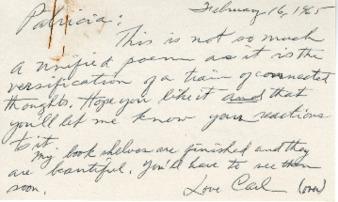 Patricia:
February 16, 1965
This is not so much
a unified poem as it is the
versification of a train of connected
thoughts. Hope you like it and that
you'll let me know your reactions
to it.
My book shelves are finished and they
are beautiful. You'll have to see them
soon.
Love Carl (over)